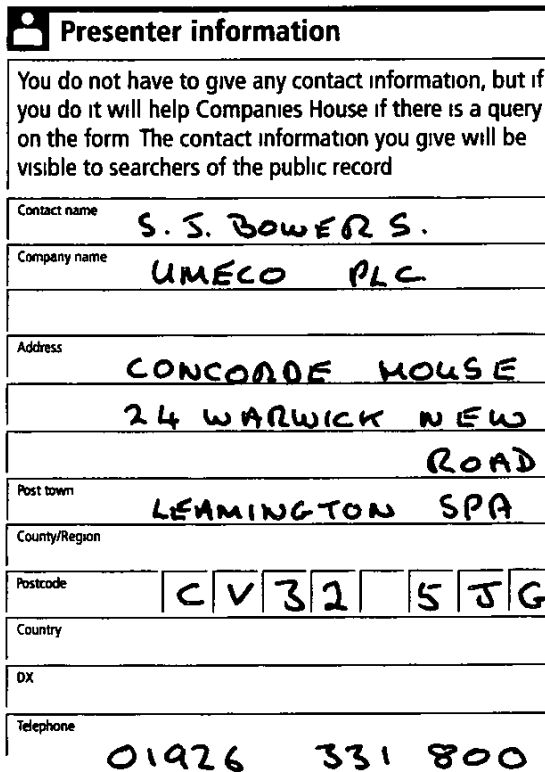 Presenter information
You do not have to give any contact information, but if
you do it will help Companies House if there is a query
on the form The contact information you give will be
visible to searchers of the public record
Contact name
S. J. BOWERS.
Company name
UMECO PLC
Address
CONCORDE HOUSE
24 WARWICK NEW
ROAD
Post town
LEAMINGTON SPA
County/Region
Postcode
CV32 5JG
Country
DX
Telephone
01926 331 800